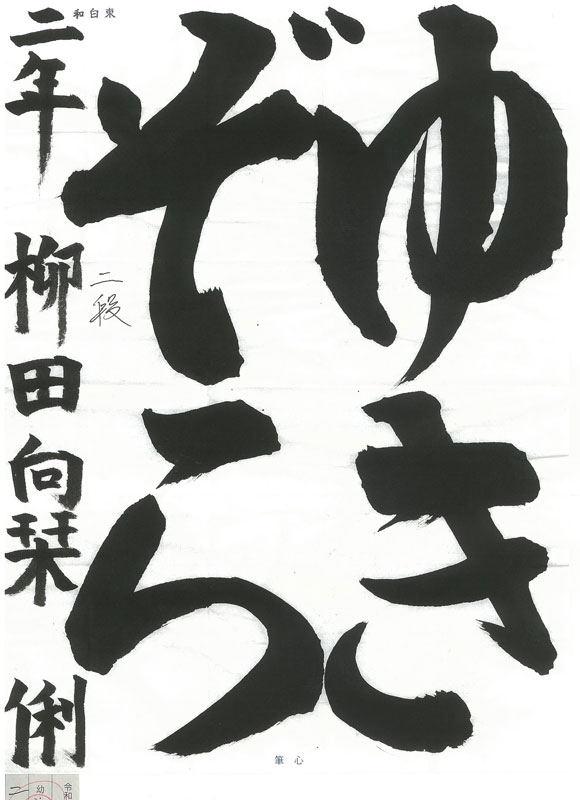 ゆき
ぞら
二年 柳田向栞 俐
二段
東白和
心筆
令和
幼
二